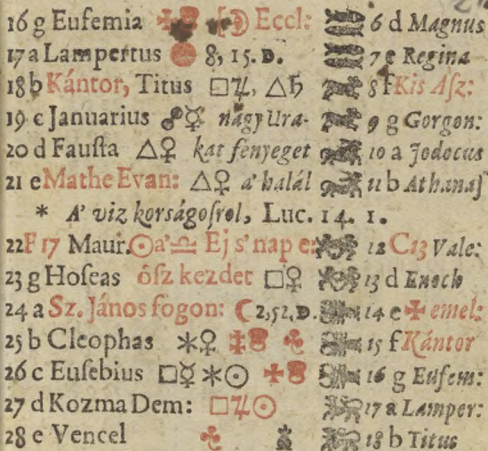 16 g Eufemia Eccl: 6 d Magnus
17 a Lampertus 8, 15. D. 7 e Regina
18 b Kántor, Titus □♃, △♄ 8 f Kis Aſz:
19 c Januarius ☍☿ nagy Ura- 9 g Gorgon:
20 d Fauſta △♀ kat fenyeget 10 a Jodocus
21 e Mathe Evan: △♀ a' halál 11 b Athanaſ
* A' viz korságoſrol, Luc. 14. 1.
22 F 17 Maur. ☉ a' ♎ Ej s' nap e: 12 C 13 Vale:
23 g Hoſeas óſz kezdet □♀ 13 d Enoch
24 a Sz. János fogon: ☾ 2, 52. D. 14 e ✠ emel:
25 b Cleophas ⚹♀ 15 f Kántor
26 c Euſebius □☿ ⚹☉ 16 g Eufem:
27 d Kozma Dem: □♃☉ 17 a Lamper:
28 e Vencel 18 b Titus